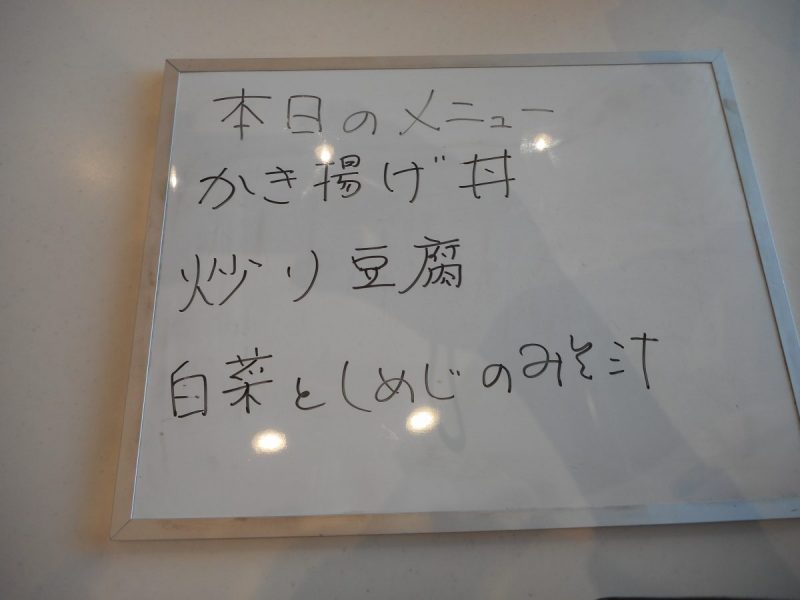 本日のメニュー
かき揚げ丼
炒り豆腐
白菜としめじのみそ汁